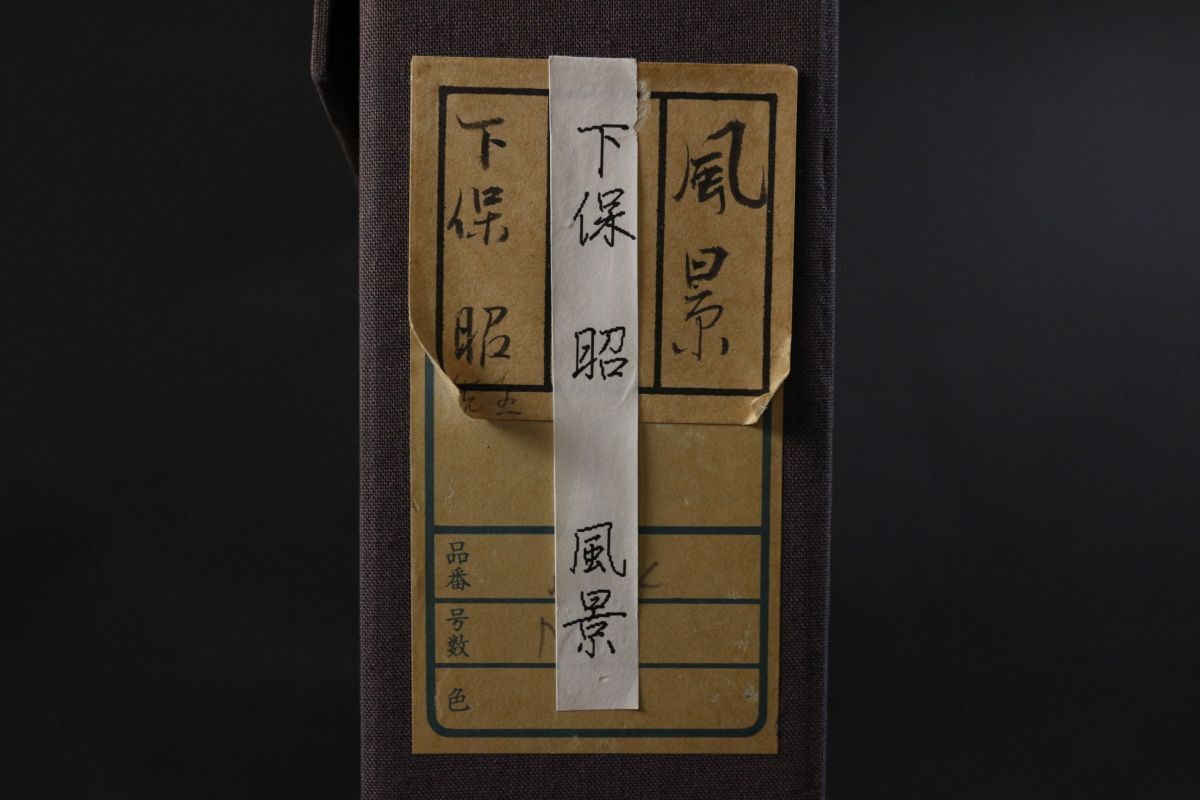 風景
下保 昭
先生
下保 昭 風景
品番
号数
色